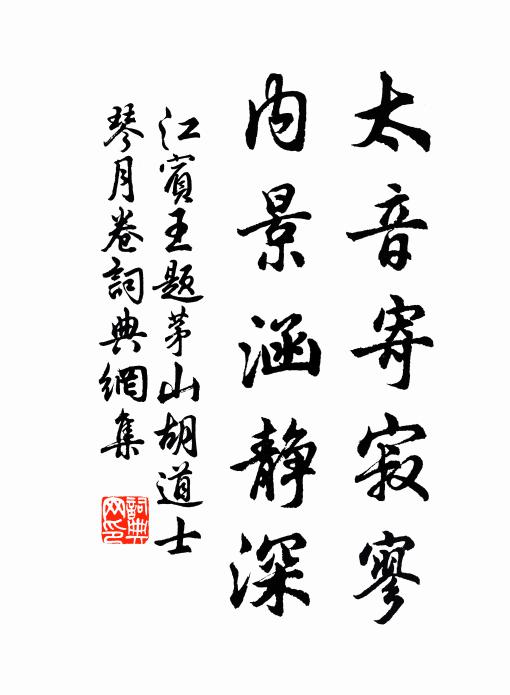 太音寄寂寥
内景涵静深
江宾王题茅山胡道士
琴月卷詞典網集
詞典
网印